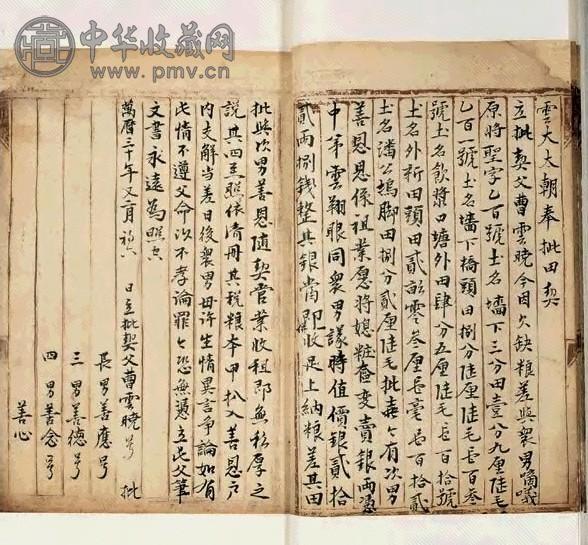 中华收藏网
www.pmv.cn
雲大大朝奉批田契
立批契父曹雲曉今因欠缺粮差與衆男啇議
原將聖字乙百號土名墻下三分田壹分九厘陸毛
乙百一號土名墻下橋頭田捌分陸厘陸毛乙百叁
號土名飲漿口塘外田肆分五厘陸毛乙百拾號
土名外新田頭田貳畝零叁厘毫乙百拾貳
土名潘公塢脚田捌分貳厘陸毛批與有次男
善恩恩係祖業愿將媳粧奩变賣銀兩憑
中弟雲翔眼同衆男議時值價銀貳拾
貳兩捌錢整其銀當即收足上納粮差其田
批與次男善恩随契管業收租即無私厚之
説其四至照依清冊其税粮本甲扒入善恩户
内支解當差日後衆男毋許生情異言争論如有
此情不遵父命以不孝論罪今恐無憑立此父筆
文書永遠為照
萬曆三十年又二月 日立批契父曹雲曉号 批
長男善應号
三男善德号
四男善念号
善心